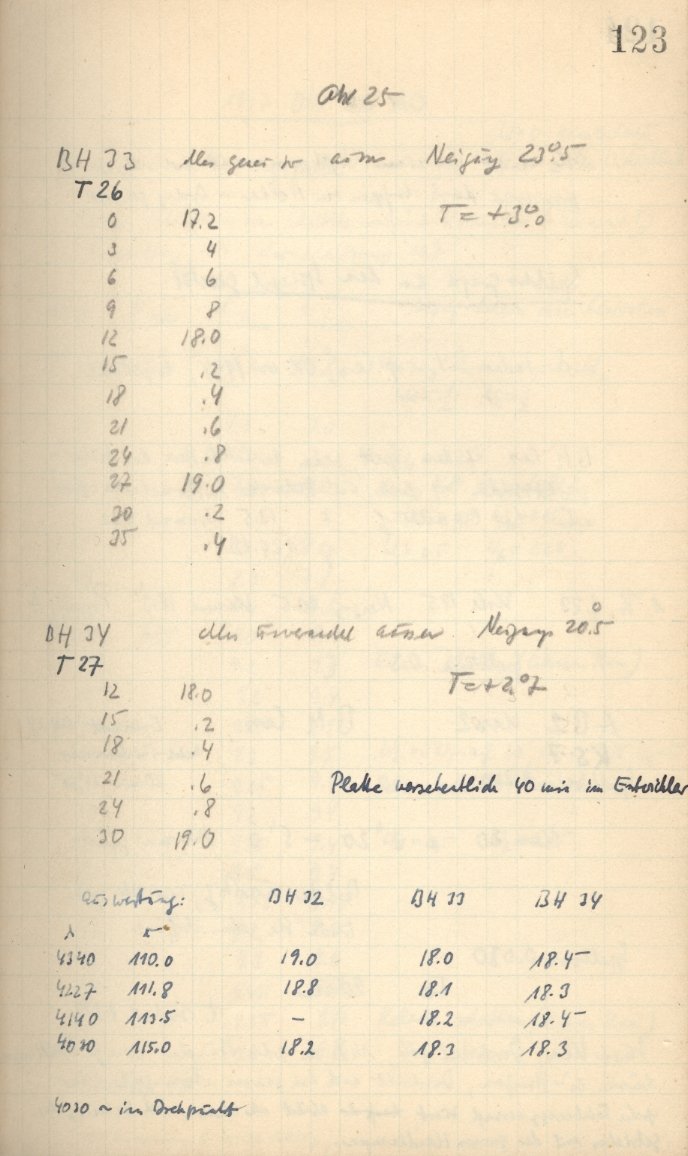 123
Okt 25
BH 33 alles genau so ausser Neigung 23°.5
T 26 T = +3°.0
0 17.2
3 4
6 6
9 8
12 18.0
15 .2
18 .4
21 .6
24 .8
27 19.0
30 .2
35 .4
BH 34 alles ausser Neigung 20°.5
T 27 T = +2°.7
12 18.0
15 .2
18 .4
21 .6 Platte versehentlich 40 min im Entwickler
24 .8
30 19.0
Auswertung: BH 32 BH 33 BH 34
λ r
4340 110.0 19.0 18.0 18.45
4227 111.8 18.8 18.1 18.3
4140 113.5 – 18.2 18.45
4030 115.0 18.2 18.3 18.3
4030 ~ im Drehpunkt